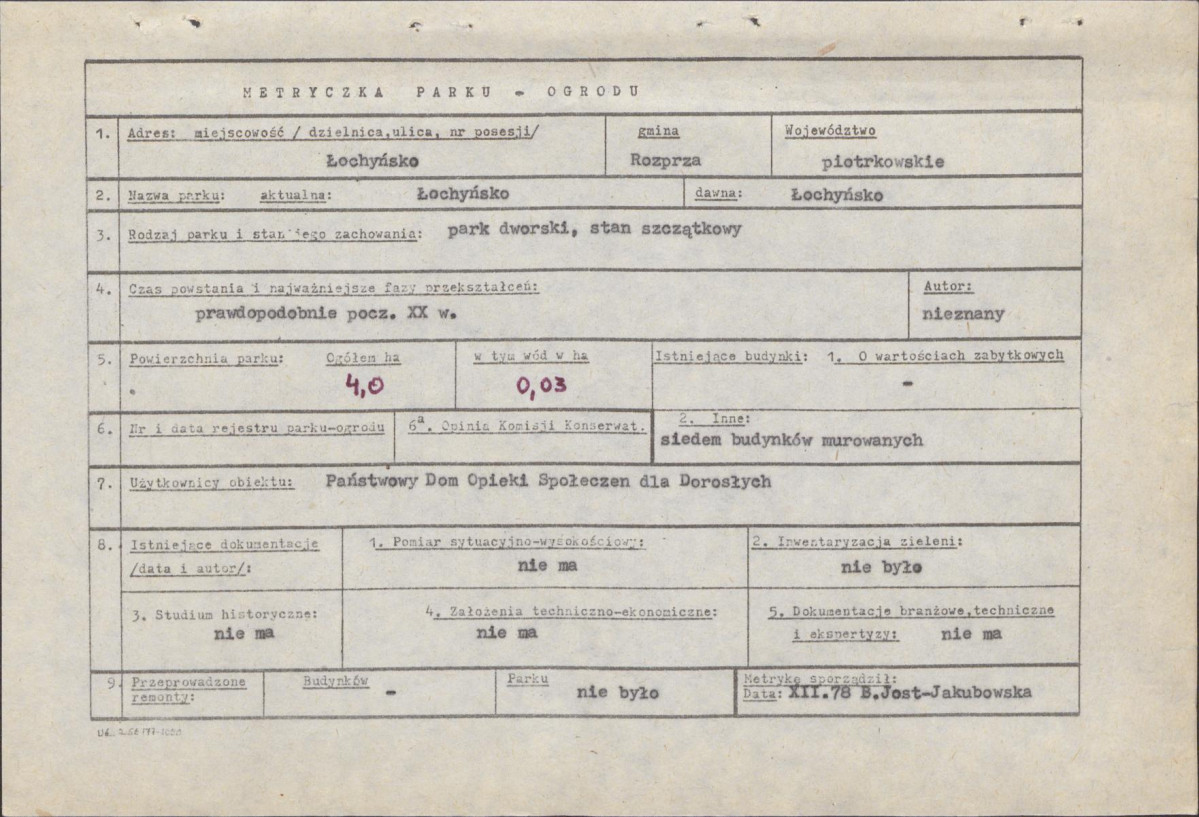 METRYCZKA PARKU - OGRODU
1. Adres: miejscowość / dzielnica,ulica, nr posesji/ gmina Województwo
Łochyńsko Rozprza piotrkowskie
2. Nazwa parku: aktualna: Łochyńsko dawna: Łochyńsko
3. Rodzaj parku i stan jego zachowania: park dworski, stan szczątkowy
4. Czas powstania i najważniejsze fazy przekształceń: Autor:
prawdopodobnie pocz. XX w. nieznany
5. Powierzchnia parku: Ogółem ha w tym wód w ha Istniejące budynki: 1. O wartościach zabytkowych
4,0 0,03 -
6. Nr i data rejestru parku-ogrodu 6a. Opinia Komisji Konserwat. 2. Inne:
siedem budynków murowanych
7. Użytkownicy obiektu: Państwowy Dom Opieki Społeczen dla Dorosłych
8. Istniejące dokumentacje 1. Pomiar sytuacyjno-wysokościowy: 2. Inwentaryzacja zieleni:
/data i autor/: nie ma nie było
3. Studium historyczne: 4. Założenia techniczno-ekonomiczne: 5. Dokumentacje branżowe,techniczne
nie ma nie ma i ekspertyzy: nie ma
9. Przeprowadzone Budynków Parku Metrykę sporządził:
remonty: - nie było Data: XII.78 B.Jost-Jakubowska